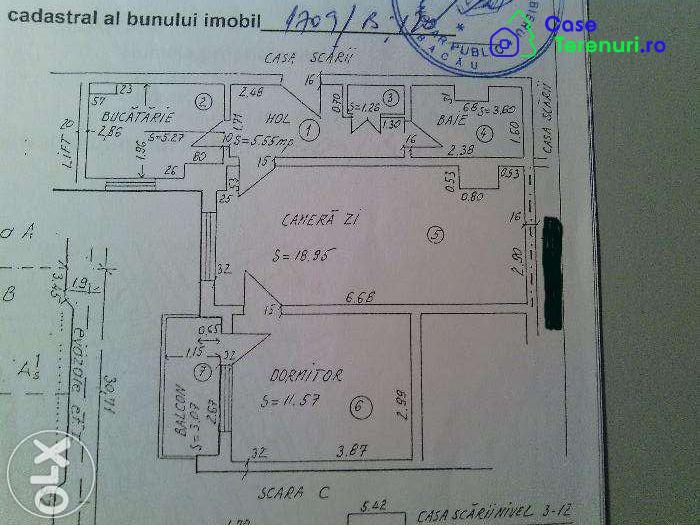 cadastral al bunului imobil 1709/B;
Case
Terenuri.ro
BACĂU
CASA SCĂRII
CASA SCĂRII
57
23
BUCĂTĂRIE
2,86
2
S=5.27
1.96
26
80
2.48
1.71
10
HOL
1
S=5.55mp
15
16
0.70
S=1.26
3
1.30
16
BAIE
31
68
S=3.80
4
1.60
2.38
25
53
CAMERĂ ZI
S=18.95
5
0.53
0.80
0.53
16
2.90
32
6.68
15
0.65
1.15
32
7
BALCON
S=3.07
2.67
DORMITOR
S=11.57
6
2.99
32
3.87
A
B
3.45
1.9
30,71
SCARA C
5.42
CASA SCĂRII NIVEL 3-12
OLX